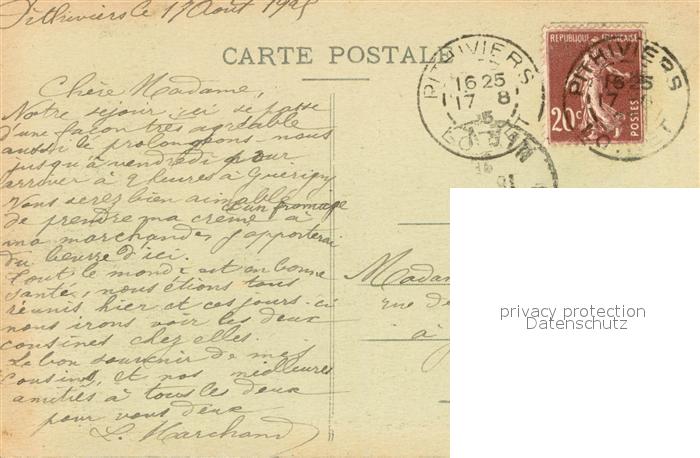 Pithiviers le 17 Août 1925
CARTE POSTALE
Chère Madame,
Notre séjour ici se passe
d'une façon très agréable
aussi le prolongeons-nous
jusqu'à vendredi pour
arriver à 2 heures à Guérigny
Vous serez bien aimable
de prendre ma crème à d'un fromage
ma marchande, j'apporterai
du beurre d'ici.
Tout le monde est en bonne
santé, nous étions tous
réunis hier et ces jours-ci
nous irons voir les deux
cousines chez elles.
Le bon souvenir de mes
cousines, et nos meilleures
amitiés à tous les deux
pour vous deux
L. Marchand
PITHIVIERS
16 25
17 8
LOIRET
REPUBLIQUE FRANÇAISE
20c
POSTES
PITHIVIERS
16 25
17
LOIRET
Madam
rue de
à
privacy protection
Datenschutz